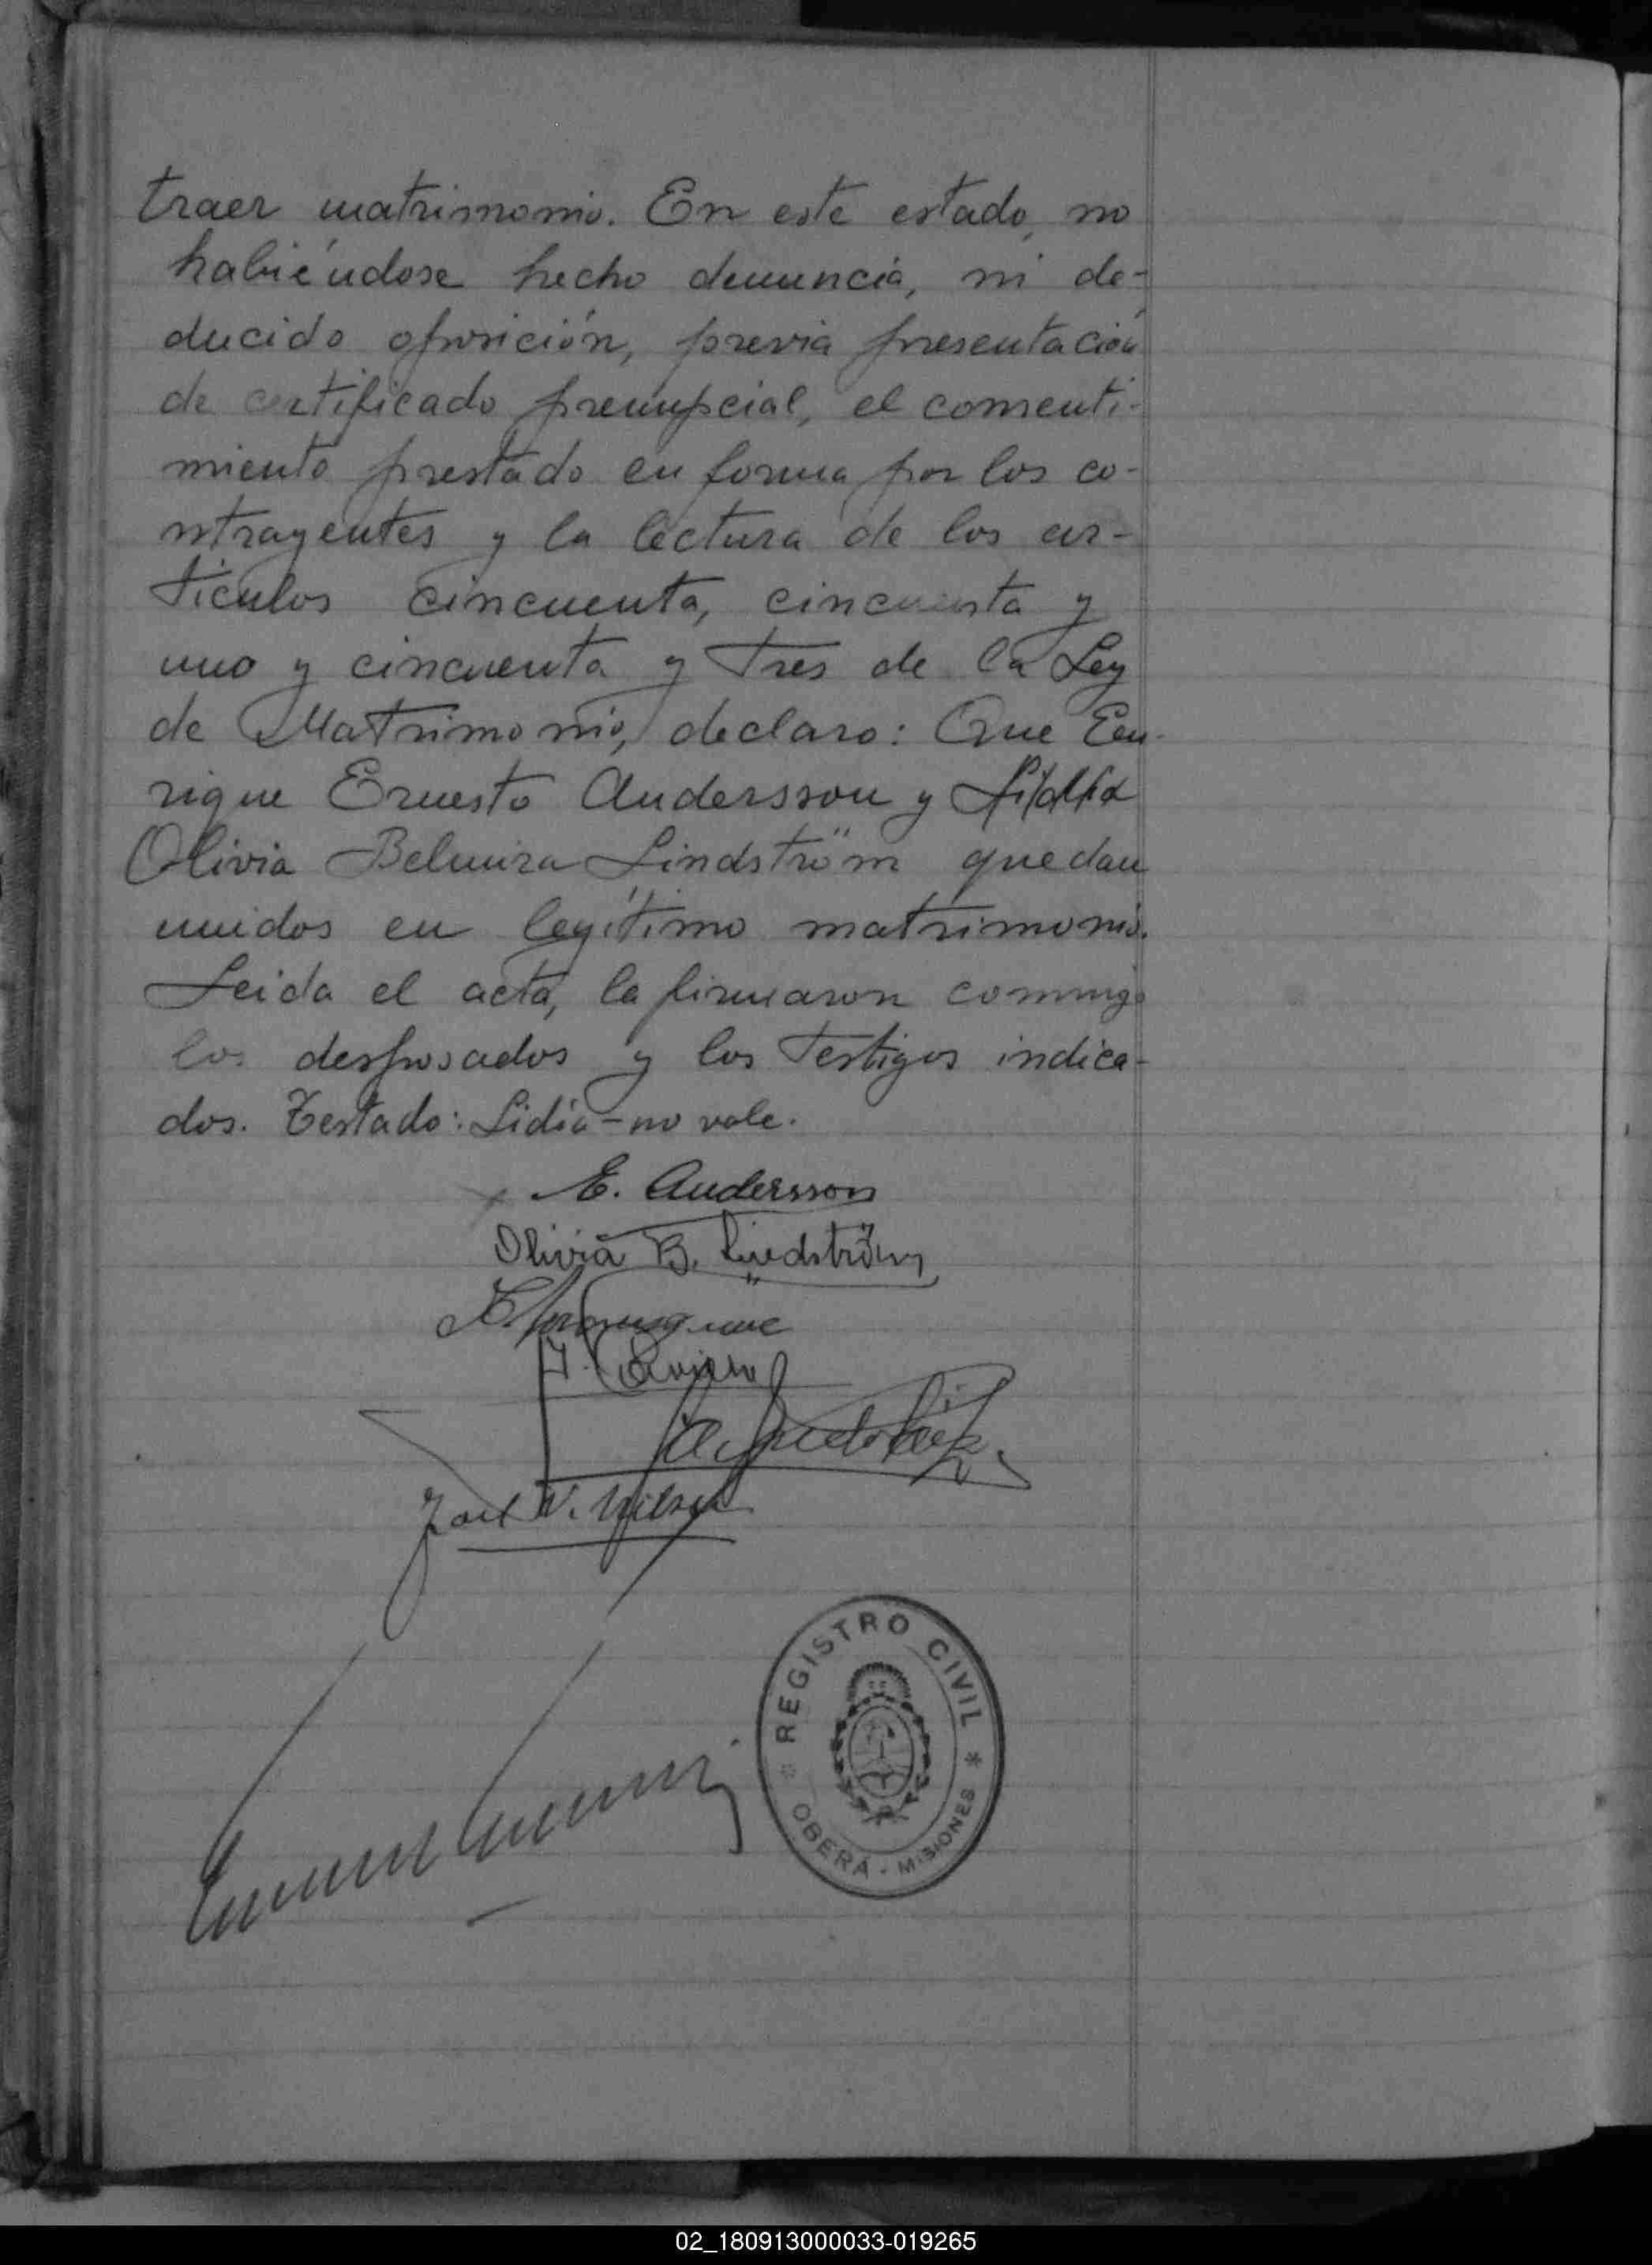 traer matrimonio. En este estado, no
habiéndose hecho denuncia, ni de-
ducido oposición, previa presentación
de certificado prenupcial, el consenti-
miento prestado en forma por los co-
ntrayentes y la lectura de los ar-
tículos cincuenta, cincuenta y
uno y cincuenta y tres de la Ley
de Matrimonio, declaro: Que En-
rique Ernesto Andersson y Lidia
Olivia Belmira Lindström quedan
unidos en legítimo matrimonio.
Leida el acta, la firmaron conmigo
los desposados y los testigos indica-
dos. Testado: Lidia - no vale.
E. Andersson
Olivia B. Lindström
REGISTRO CIVIL
OBERÁ - MISIONES
02_180913000033-019265